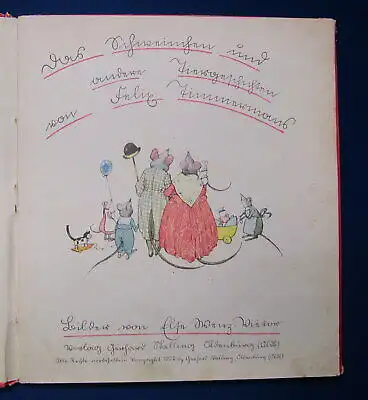 Das Schweinchen und
andere Tiergeschichten
von Felix Timmermans
Bilder von Else Wenz Vietor
Verlag Gerhard Stalling Oldenburg i/O
Alle Rechte vorbehalten Copyright by Gerhard Stalling Oldenburg